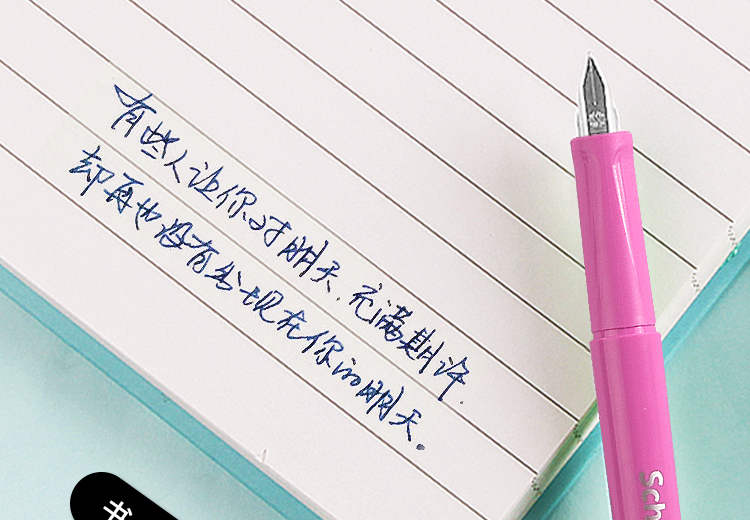 有些人让你对明天.充满期许.
却再也没有出现在你的明天.
Sch
书